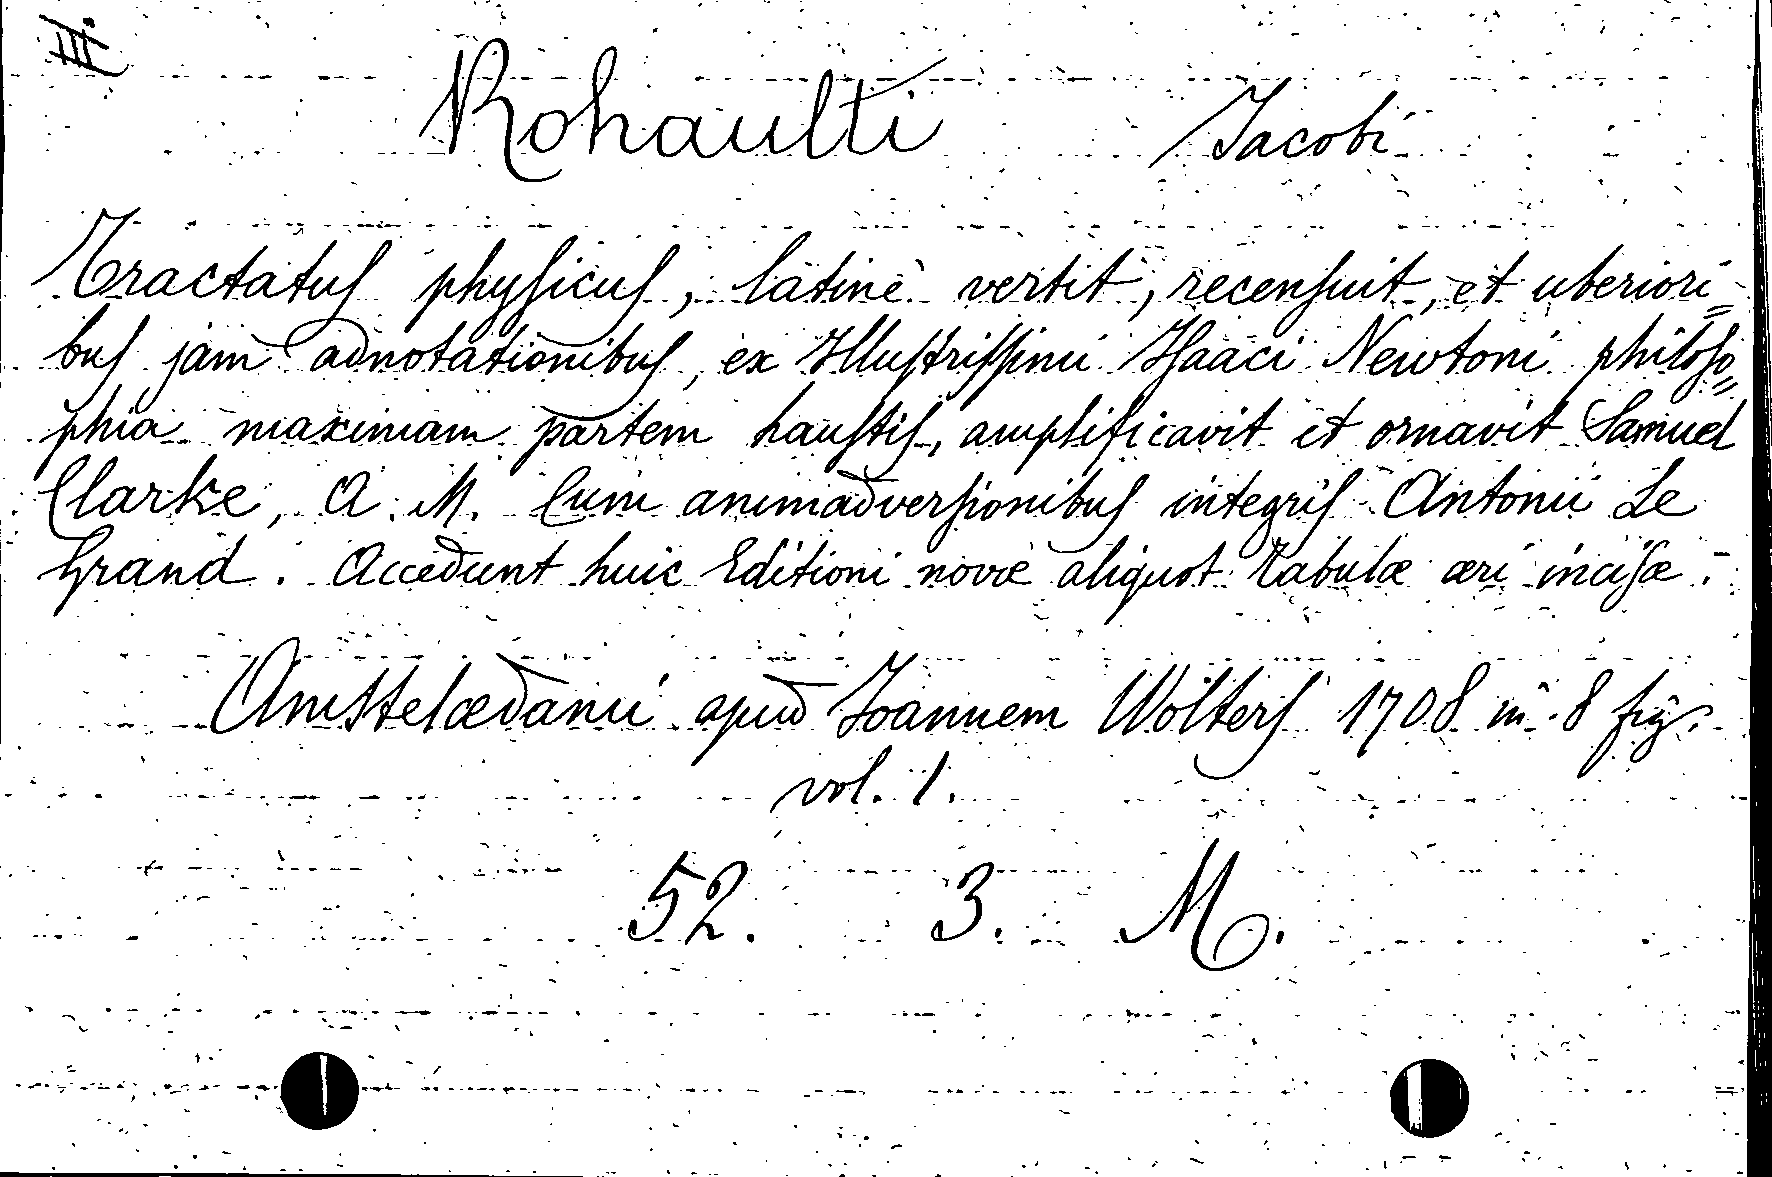 III.
Rohaulti Jacobi
Tractatus physicus, latine vertit, recensuit, et uberiori=
bus jam adnotationibus, ex Illustrissimi Isaaci Newtoni philoso=
phia maximam partem haustis, amplificavit et ornavit Samuel
Clarke, A. M. Cum animadversionibus integris Antonii Le
Grand. Accedunt huic Editioni novæ aliquot Tabulæ æri incisæ.
Amstelædami apud Joannem Wolters 1708 in 8 fig.
vol. 1.
52. 3. M.